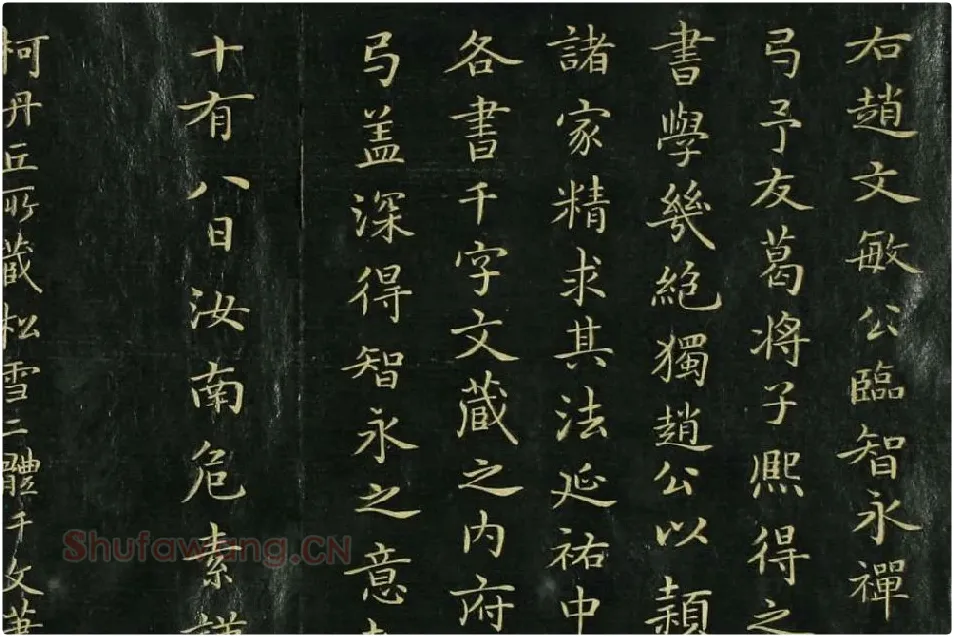 右趙文敏公臨智永禪
弓予友葛将子熈得之
書學㡬絶獨趙公以穎
諸家精求其法延祐中
各書千字文蔵之内府
弓盖深得智永之意
十有八日汝南危素謹
柯丹丘所蔵松雪二體千文
Shufawang.CN